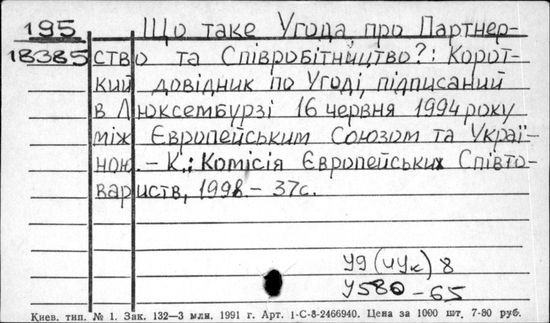 195
18385
Що таке Угода про Партнер-
ство та Співробітництво?: Корот-
кий довідник по Угоді, підписаний
в Люксембурзі 16 червня 1994 року
між Європейським Союзом та Украї-
ною. - К.: Комісія Європейських Співто-
вариств, 1998. - 37с.
У9(4Ук)8
У580 -65
Киев. тип. № 1. Зак. 132—3 млн. 1991 г. Арт. 1-С-8-2466940. Цена за 1000 шт. 7-80 руб.